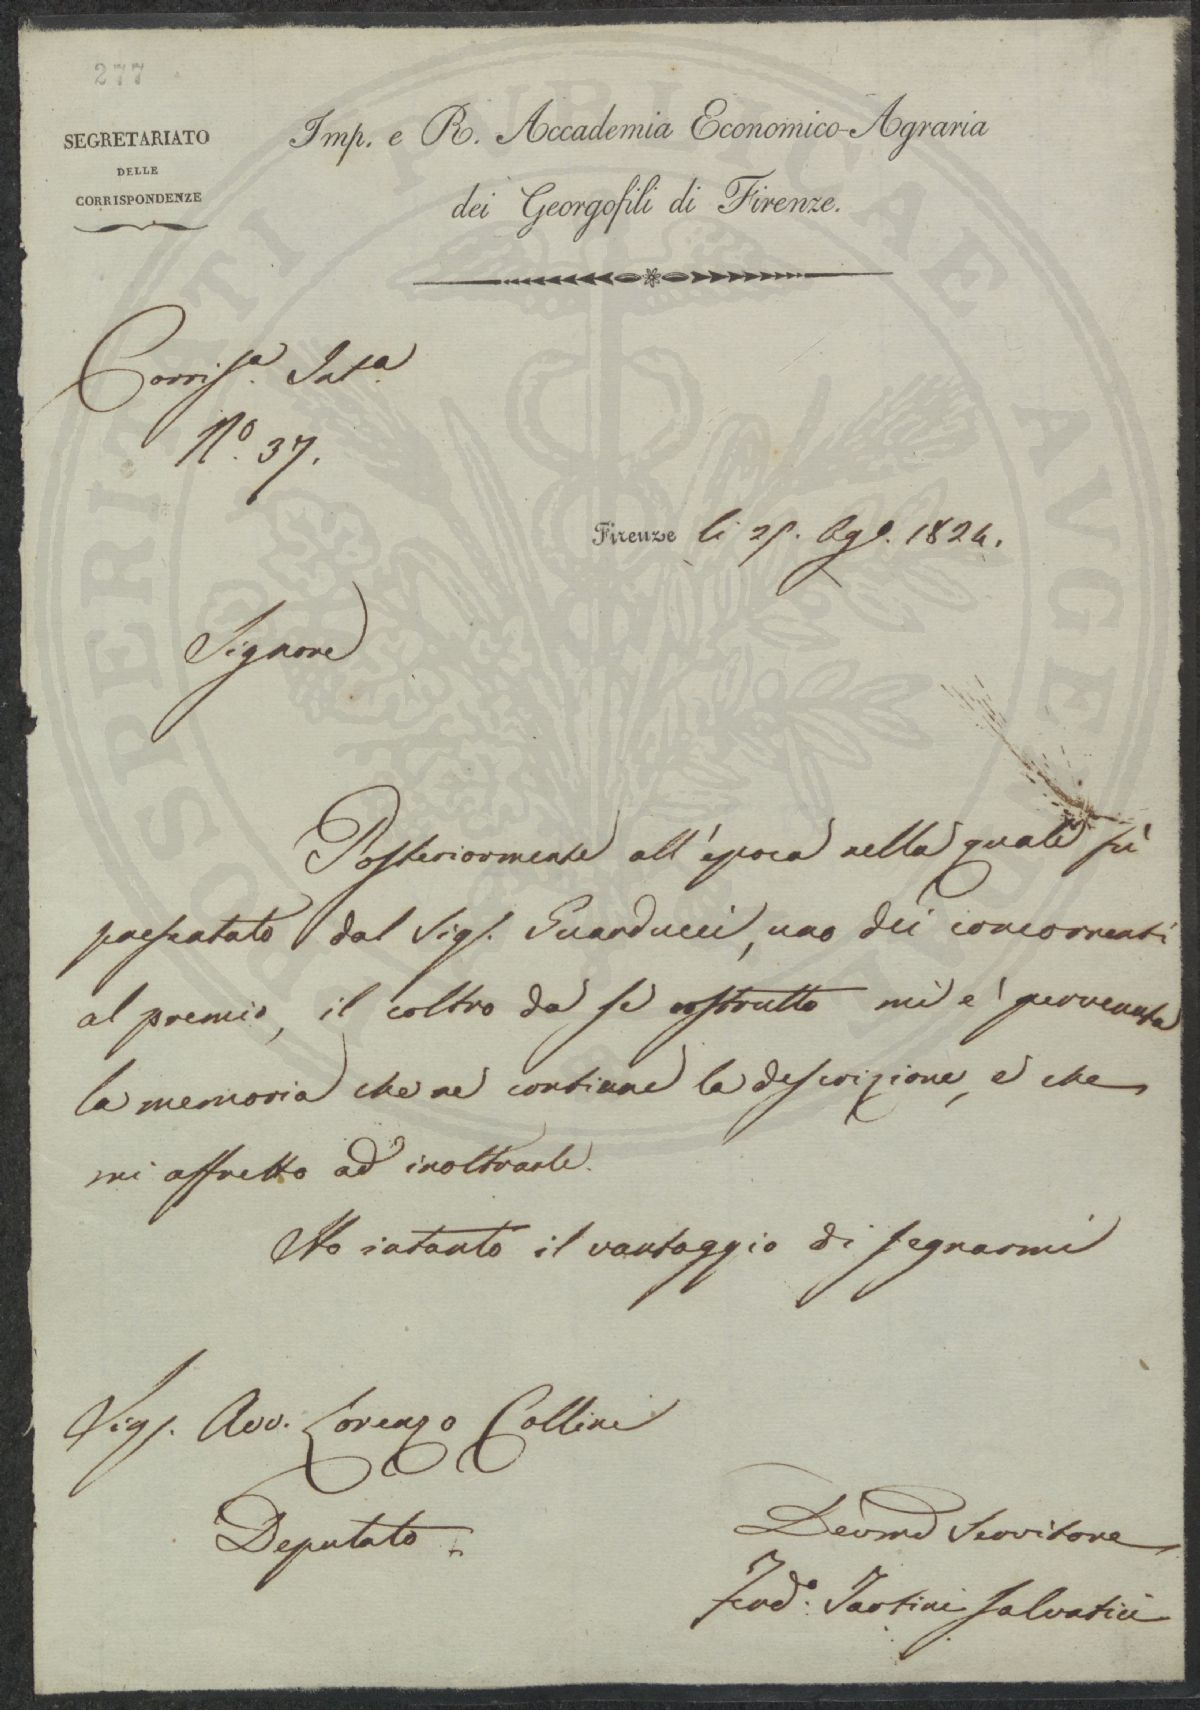 277
SEGRETARIATO
DELLE
CORRISPONDENZE
Imp. e R. Accademia Economico-Agraria
dei Georgofili di Firenze.
Corrisp.a Int.a
N.o 37.
Firenze li 25. Ag.o 1824.
Signore
Posteriormente all'epoca nella quale fù
presentato dal Sig.r Guarducci, uno dei concorrenti
al premio, il coltro da se costrutto mi è pervenuta
la memoria che ne contiene la descrizione, e che
mi affretto ad inoltrarle.
Ho intanto il vantaggio di segnarmi
Sig.r Avv. Lorenzo Collini
Deputato
Devmo Servitore
Ferd.o Tartini Salvatici
PROSPERITATI PUBLICAE AUGENDAE